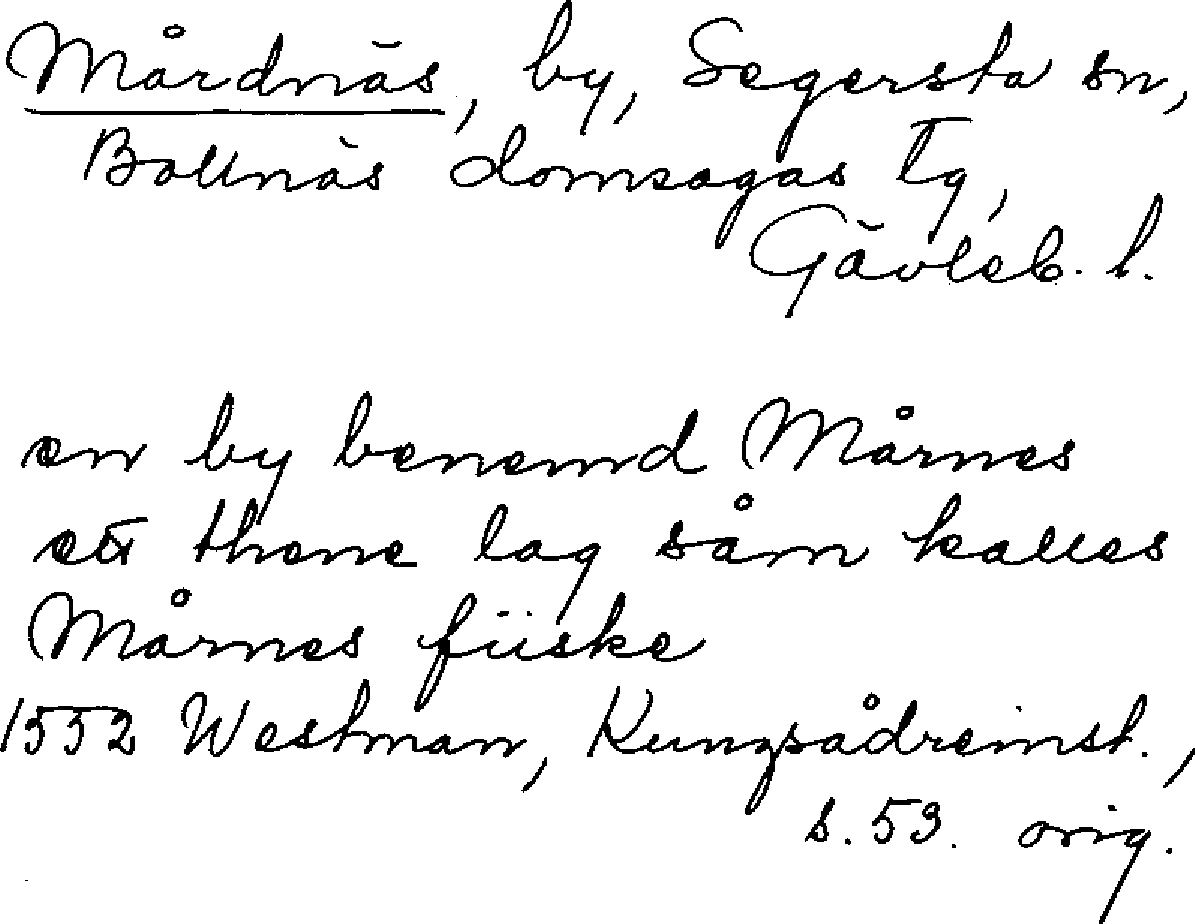 Mårdnäs, by, Segersta sn,
Bollnäs domsagas tg,
Gävleb. l.
en by benemd Mårnes
ett thene lag såm kalles
Mårnes fiiske
1552 Westman, Kungsådreinst.,
s. 53. orig.